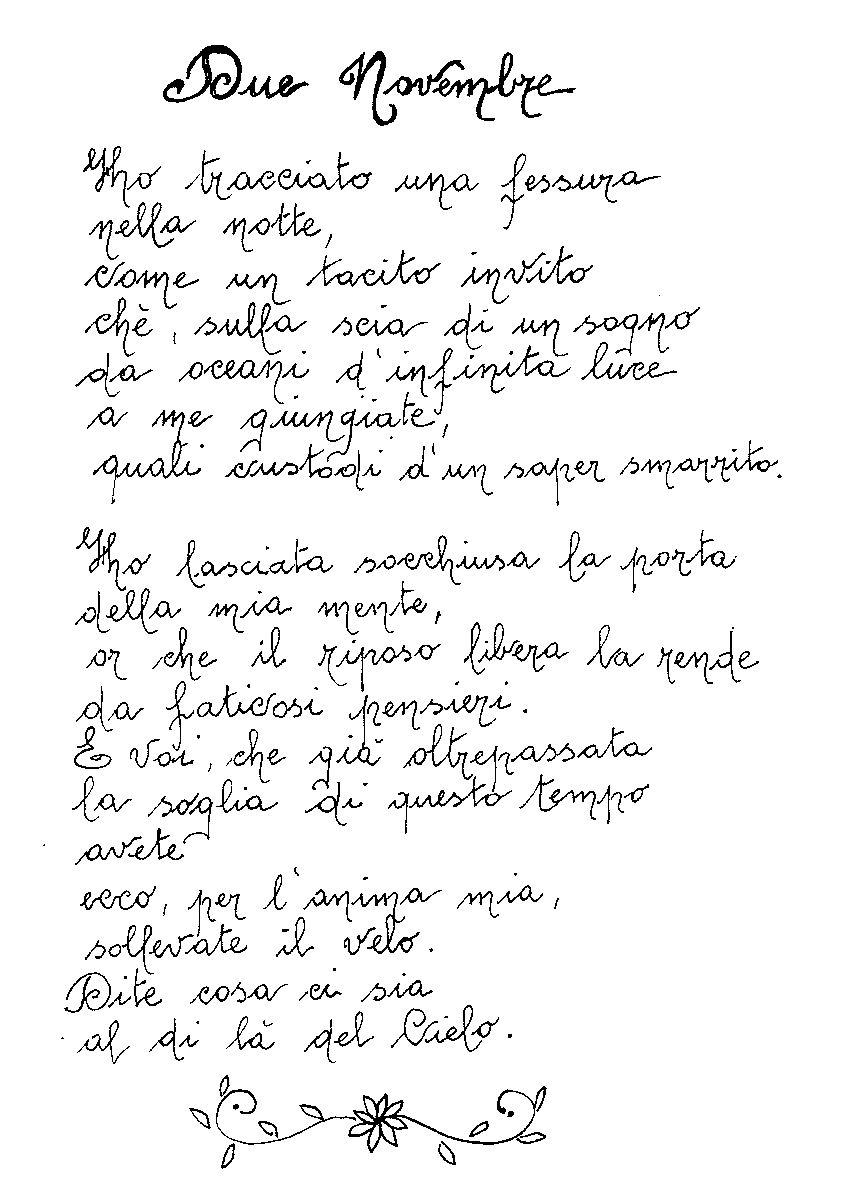 Due Novembre
Ho tracciato una fessura
nella notte,
come un tacito invito
chè, sulla scia di un sogno
da oceani d'infinita luce
a me giungiate,
quali custodi d'un saper smarrito.
Ho lasciata socchiusa la porta
della mia mente,
or che il riposo libera la rende
da faticosi pensieri.
E voi, che già oltrepassata
la soglia di questo tempo
avete
ecco, per l'anima mia,
sollevate il velo.
Dite cosa ci sia
al di là del Cielo.